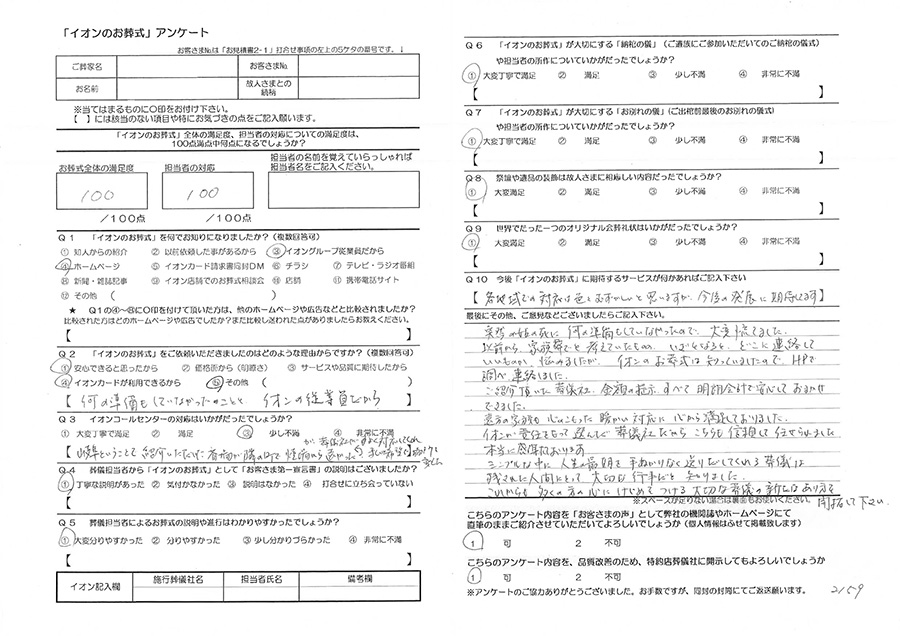 「イオンのお葬式」アンケート
お客さまNo.は「お見積書2-1」打合せ事項の左上の5ケタの番号です。↓
ご葬家名
お客さまNo.
お名前
故人さまとの続柄
※当てはまるものに〇印をお付け下さい。
【 】には該当のない項目や特にお気づきの点をご記入願います。
「イオンのお葬式」全体の満足度、担当者の対応についての満足度は、
100点満点中何点になるでしょうか?
お葬式全体の満足度
担当者の対応
担当者の名前を覚えていらっしゃれば
担当者名をご記入ください。
100
100
/100点
/100点
Q1 「イオンのお葬式」を何でお知りになりましたか?(複数回答可)
① 知人からの紹介 ② 以前依頼した事があるから ③ イオングループ従業員だから
④ ホームページ ⑤ イオンカード請求書同封DM ⑥ チラシ ⑦ テレビ・ラジオ番組
⑧ 新聞・雑誌記事 ⑨ イオン店頭でのお葬式相談会 ⑩ 店頭 ⑪ 携帯電話サイト
⑫ その他 ( )
★ Q1の④~⑧に〇印を付けて頂いた方は、他のホームページや広告などと比較されましたか?
比較された方はどのホームページや広告でしたか?また比較し迷われた点がありましたらお教えください。
【 】
Q2 「イオンのお葬式」をご依頼いただきましたのはどのような理由からですか?(複数回答可)
① 安心できると思ったから ② 価格から(割安さ) ③ サービスや品質に期待したから
④ イオンカードが利用できるから ⑤ その他 ( )
【 何の準備もしていなかったのことと、イオンの従業員だから 】
Q3 イオンコールセンターの対応はいかがだったでしょうか?
① 大変丁寧で満足 ② 満足 ③ 少し不満 ④ 非常に不満
Q4 葬儀担当者から「イオンのお葬式」として『お客さま第一宣言書』の説明はございましたか?
① 丁寧な説明があった ② 気付かなかった ③ 説明はなかった ④ 打合せに立ち会っていない
【 】
Q5 葬儀担当者によるお葬式の説明や進行はわかりやすかったでしょうか?
① 大変分りやすかった ② 分りやすかった ③ 少し分かりづらかった ④ 非常に不満
【 】
イオン記入欄
施行葬儀社名
担当者氏名
備考欄
Q6 「イオンのお葬式」が大切にする「納棺の儀」(ご遺族にご参加いただいてのご納棺の儀式)
や担当者の所作についていかがだったでしょうか?
① 大変丁寧で満足 ② 満足 ③ 少し不満 ④ 非常に不満
【 】
Q7 「イオンのお葬式」が大切にする「お別れの儀」(ご出棺前最後のお別れの儀式)
や担当者の所作についていかがだったでしょうか?
① 大変丁寧で満足 ② 満足 ③ 少し不満 ④ 非常に不満
【 】
Q8 祭壇や遺品の装飾は故人さまに相応しい内容だったでしょうか?
① 大変満足 ② 満足 ③ 少し不満 ④ 非常に不満
【 】
Q9 世界でたった一つのオリジナル会葬礼状はいかがだったでしょうか?
① 大変満足 ② 満足 ③ 少し不満 ④ 非常に不満
【 】
Q10 今後「イオンのお葬式」に期待するサービスが何かあればご記入下さい
【 各地域での対応は色々むずかしいと思いますが、今後の発展に期待してます 】
最後にその他、ご意見などございましたらご記入下さい。
突然の姉の死に何の準備もしていなかったので、大変慌てました。
以前から、家族葬でと考えていたものの、いざとなると、どこに連絡して
いいものか、悩みましたが、イオンのお葬式は知っていましたので、HPで
調べ連絡しました。
ご紹介頂いた葬儀社、金額の提示、すべて明朗会計で安心しておまかせ
できました。
遠方の家族も心のこもった暖かい対応に心から満足しておりました。
イオンが責任をもって選んだ葬儀社だからこちらも信頼して任せられました。
本当に感謝しております。
シンプルな中に人生の最期を手ぬかりなく送りだしてくれる葬儀は
残された人間にとって大切な行事だと知りました。
これからも多くの方の心にけじめをつける大切な葬儀の新たなあり方で
頑張って下さい。
※スペースが足りない場合は裏面もお使いください。
こちらのアンケート内容を「お客さまの声」として弊社の機関誌やホームページにて
直筆のままご紹介させていただいてよろしいでしょうか(個人情報はふせて掲載致します)
1 可 2 不可
こちらのアンケート内容を、品質改善のため、特約店葬儀社に開示してもよろしいでしょうか
1 可 2 不可
※アンケートのご協力ありがとうございました。お手数ですが、同封の封筒にてご返送願います。
2159